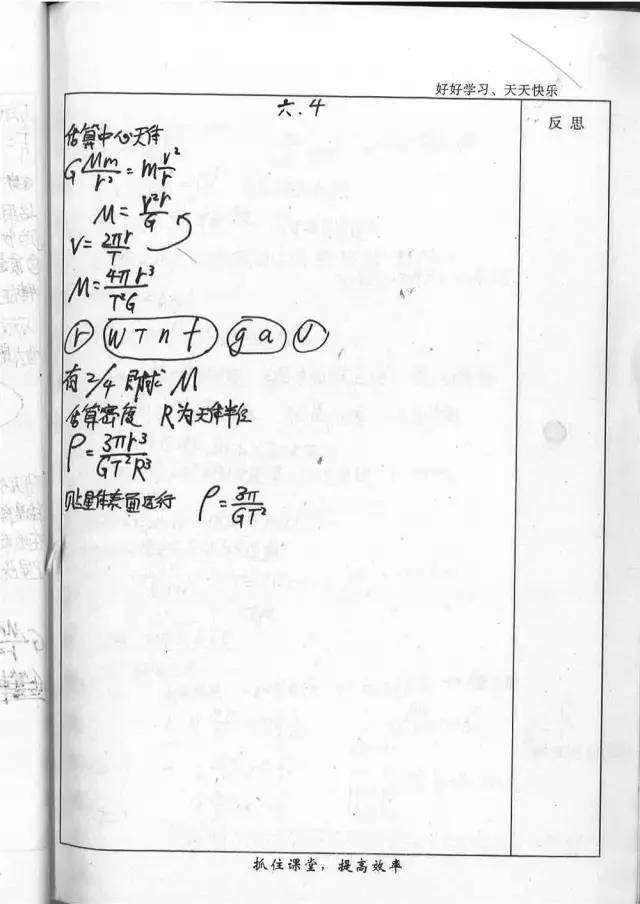 好好学习、天天快乐
六.4
反思
估算中心天体
G Mm/r² = m v²/r
M = v²r/G
v = 2πr/T
M = 4π r³/T²G
r W T n f g a v
有2/4 即求 M
估算密度 R为天体半径
ρ = 3πr³/GT²R³
贴星体表面运行 ρ = 3π/GT²
抓住课堂，提高效率